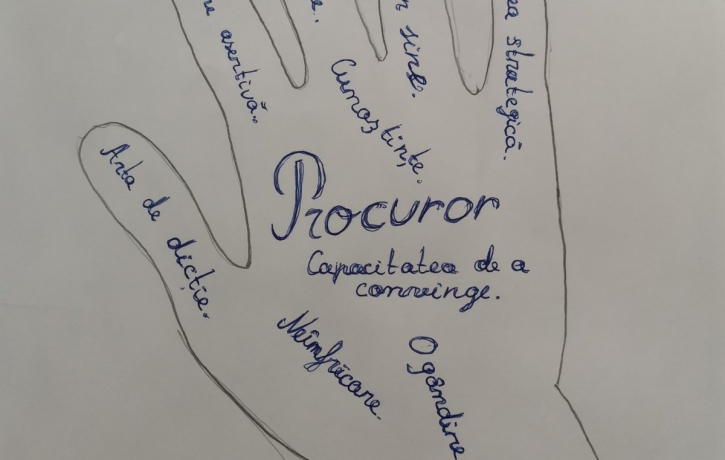 re asertivă.
e.
n sine.
ea strategică.
Cunoștințe.
Arta de dicție.
Procuror
Capacitatea de a
convinge.
Neînfricare.
O gândire